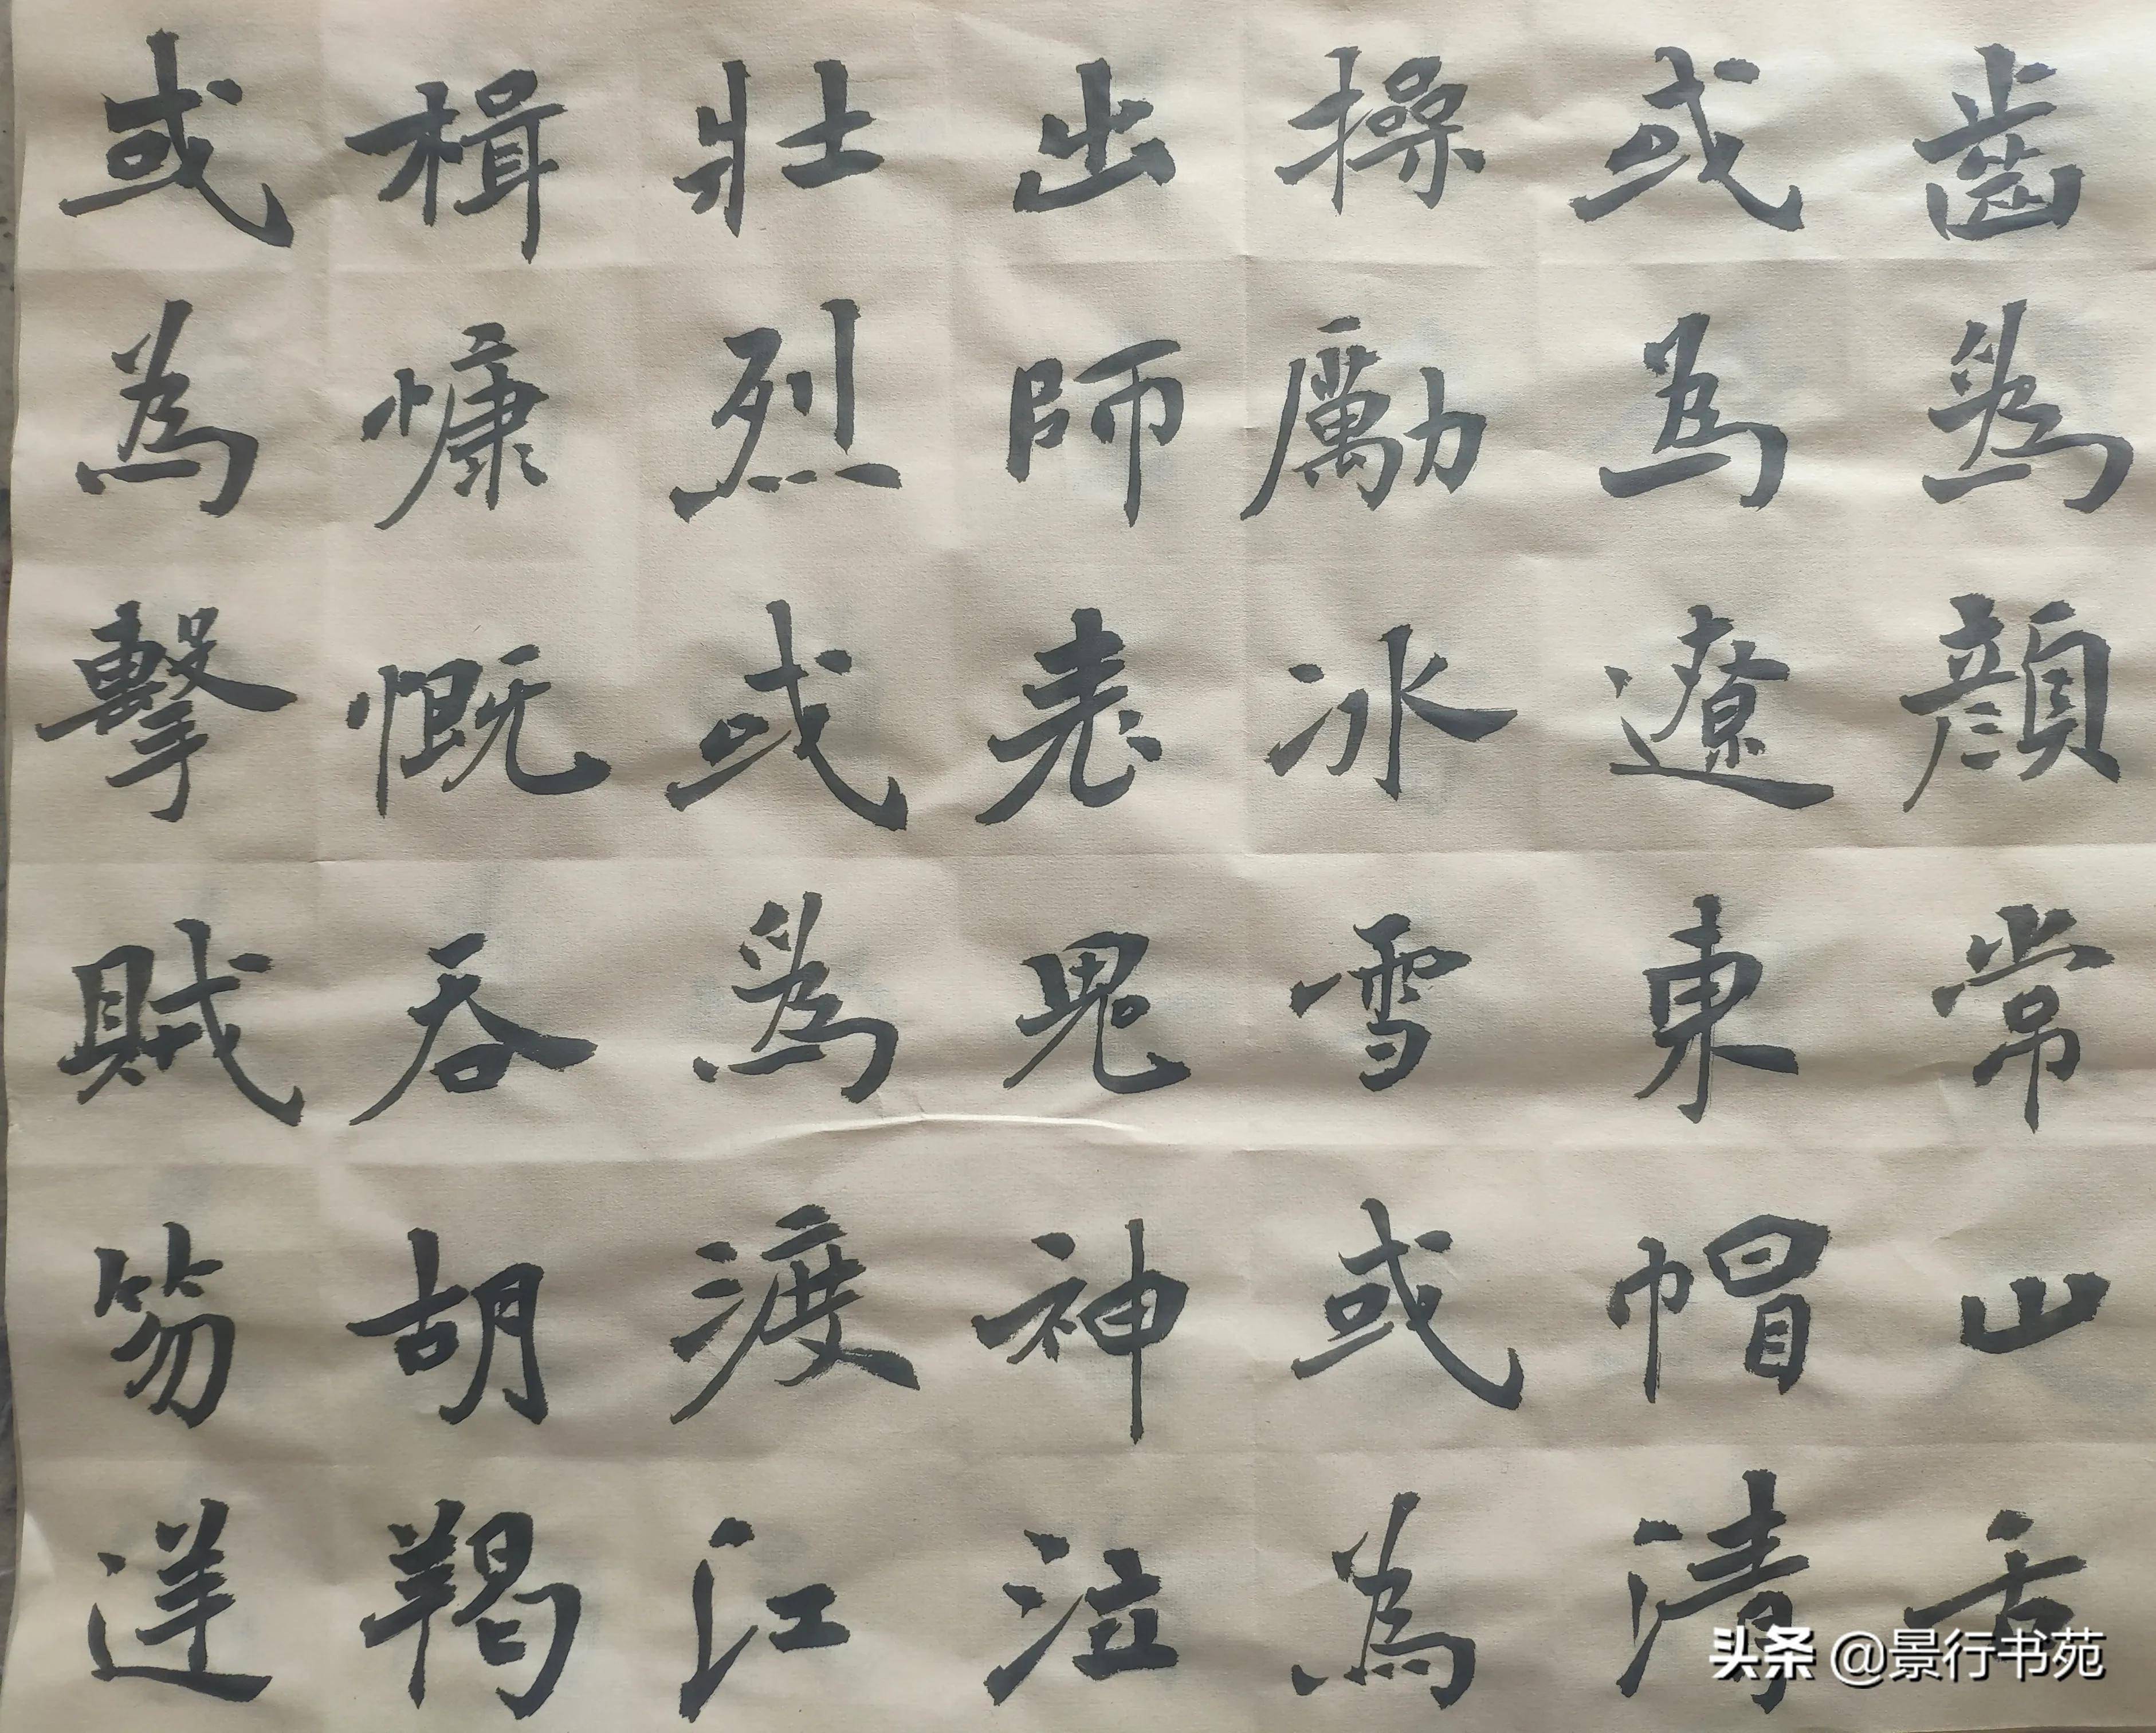 齒為顏常山舌
或為遼東帽清
操厲冰雪或為
出師表鬼神泣
壯烈或為渡江
楫慷慨吞胡羯
或為擊賊笏逆
头条 @景行书苑